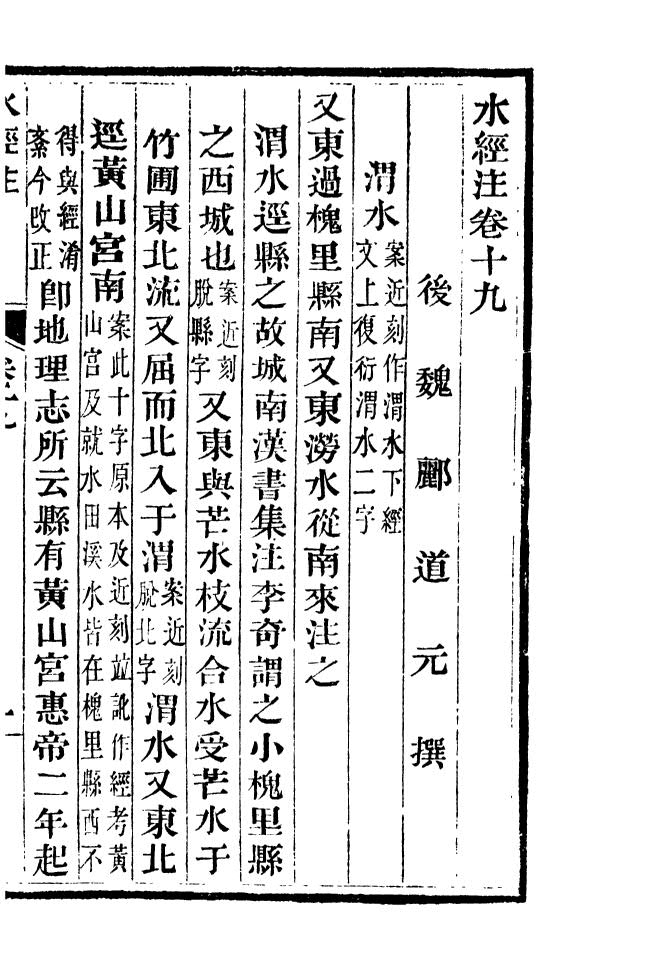 水經注卷十九
後魏酈道元撰
渭水案近刻作渭水下經文上復衍渭水二字
又東過槐里縣南又東澇水從南來注之
渭水逕縣之故城南漢書集注李奇謂之小槐里縣
之西城也案近刻脫縣字又東與芒水枝流合水受芒水于
竹圃東北流又屈而北入于渭案近刻脫北字渭水又東北
逕黃山宮南案此十字原本及近刻竝訛作經考黃山宮及就水田溪水皆在槐里縣西不
得與經淆紊今改正卽地理志所云縣有黃山宮惠帝二年起
水經注
卷十九
一